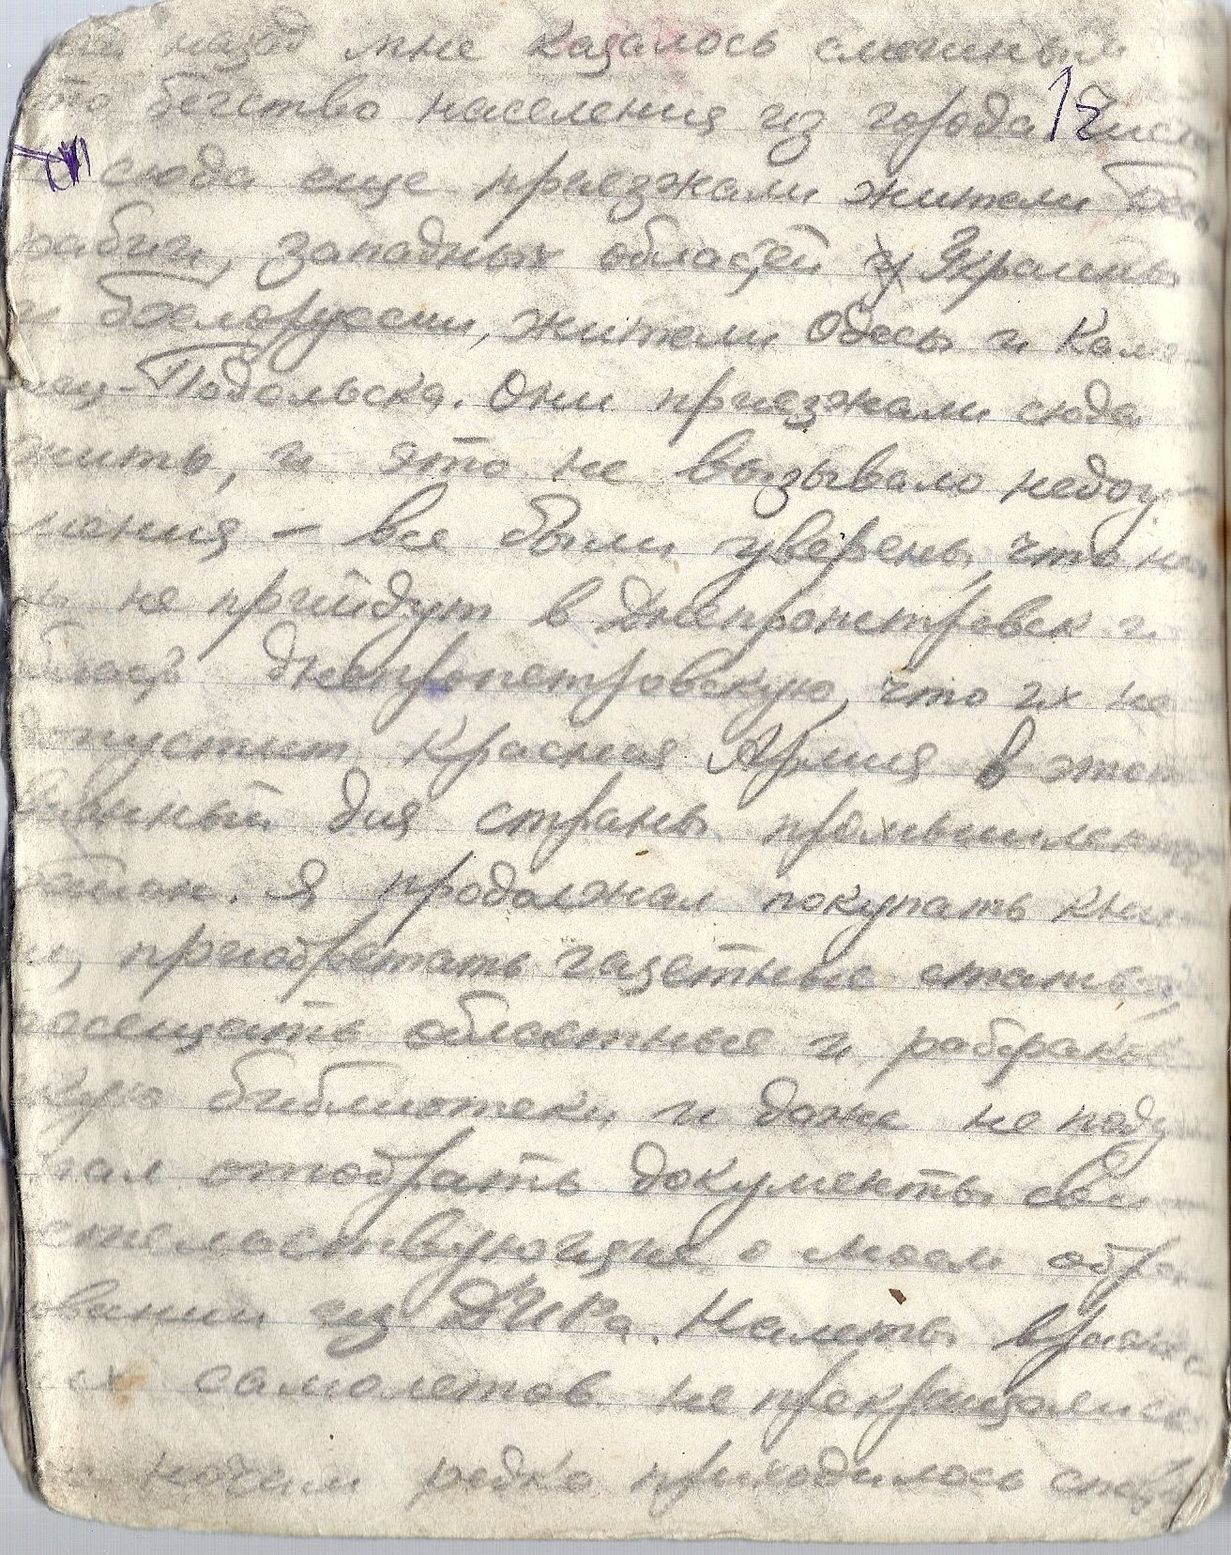 назад мне казалось смешным
бегство населения из города. Числ
сюда еще приезжали жители Бес
рабии, западных областей Украины
и Белоруссии, жители Одессы и Каме
нец-Подольска. Они приезжали сюда
жить, и это не вызывало недоу-
мения – все были уверены, что не
не прийдут в Днепропетровск и
област Днепропетровскую, что их не
пустит Красная Армия в этот
важный для страны промышленный
район. Я продолжал покупать кни
ги, приобретать газетные статьи,
посещать областные и
библиотеки и даже не поду
мал отобрать документы сви
етельствующие о моем обра
зовании из ДИИРа. Налеты вражес
их самолетов не прекращались
ночами редко приходилось спать